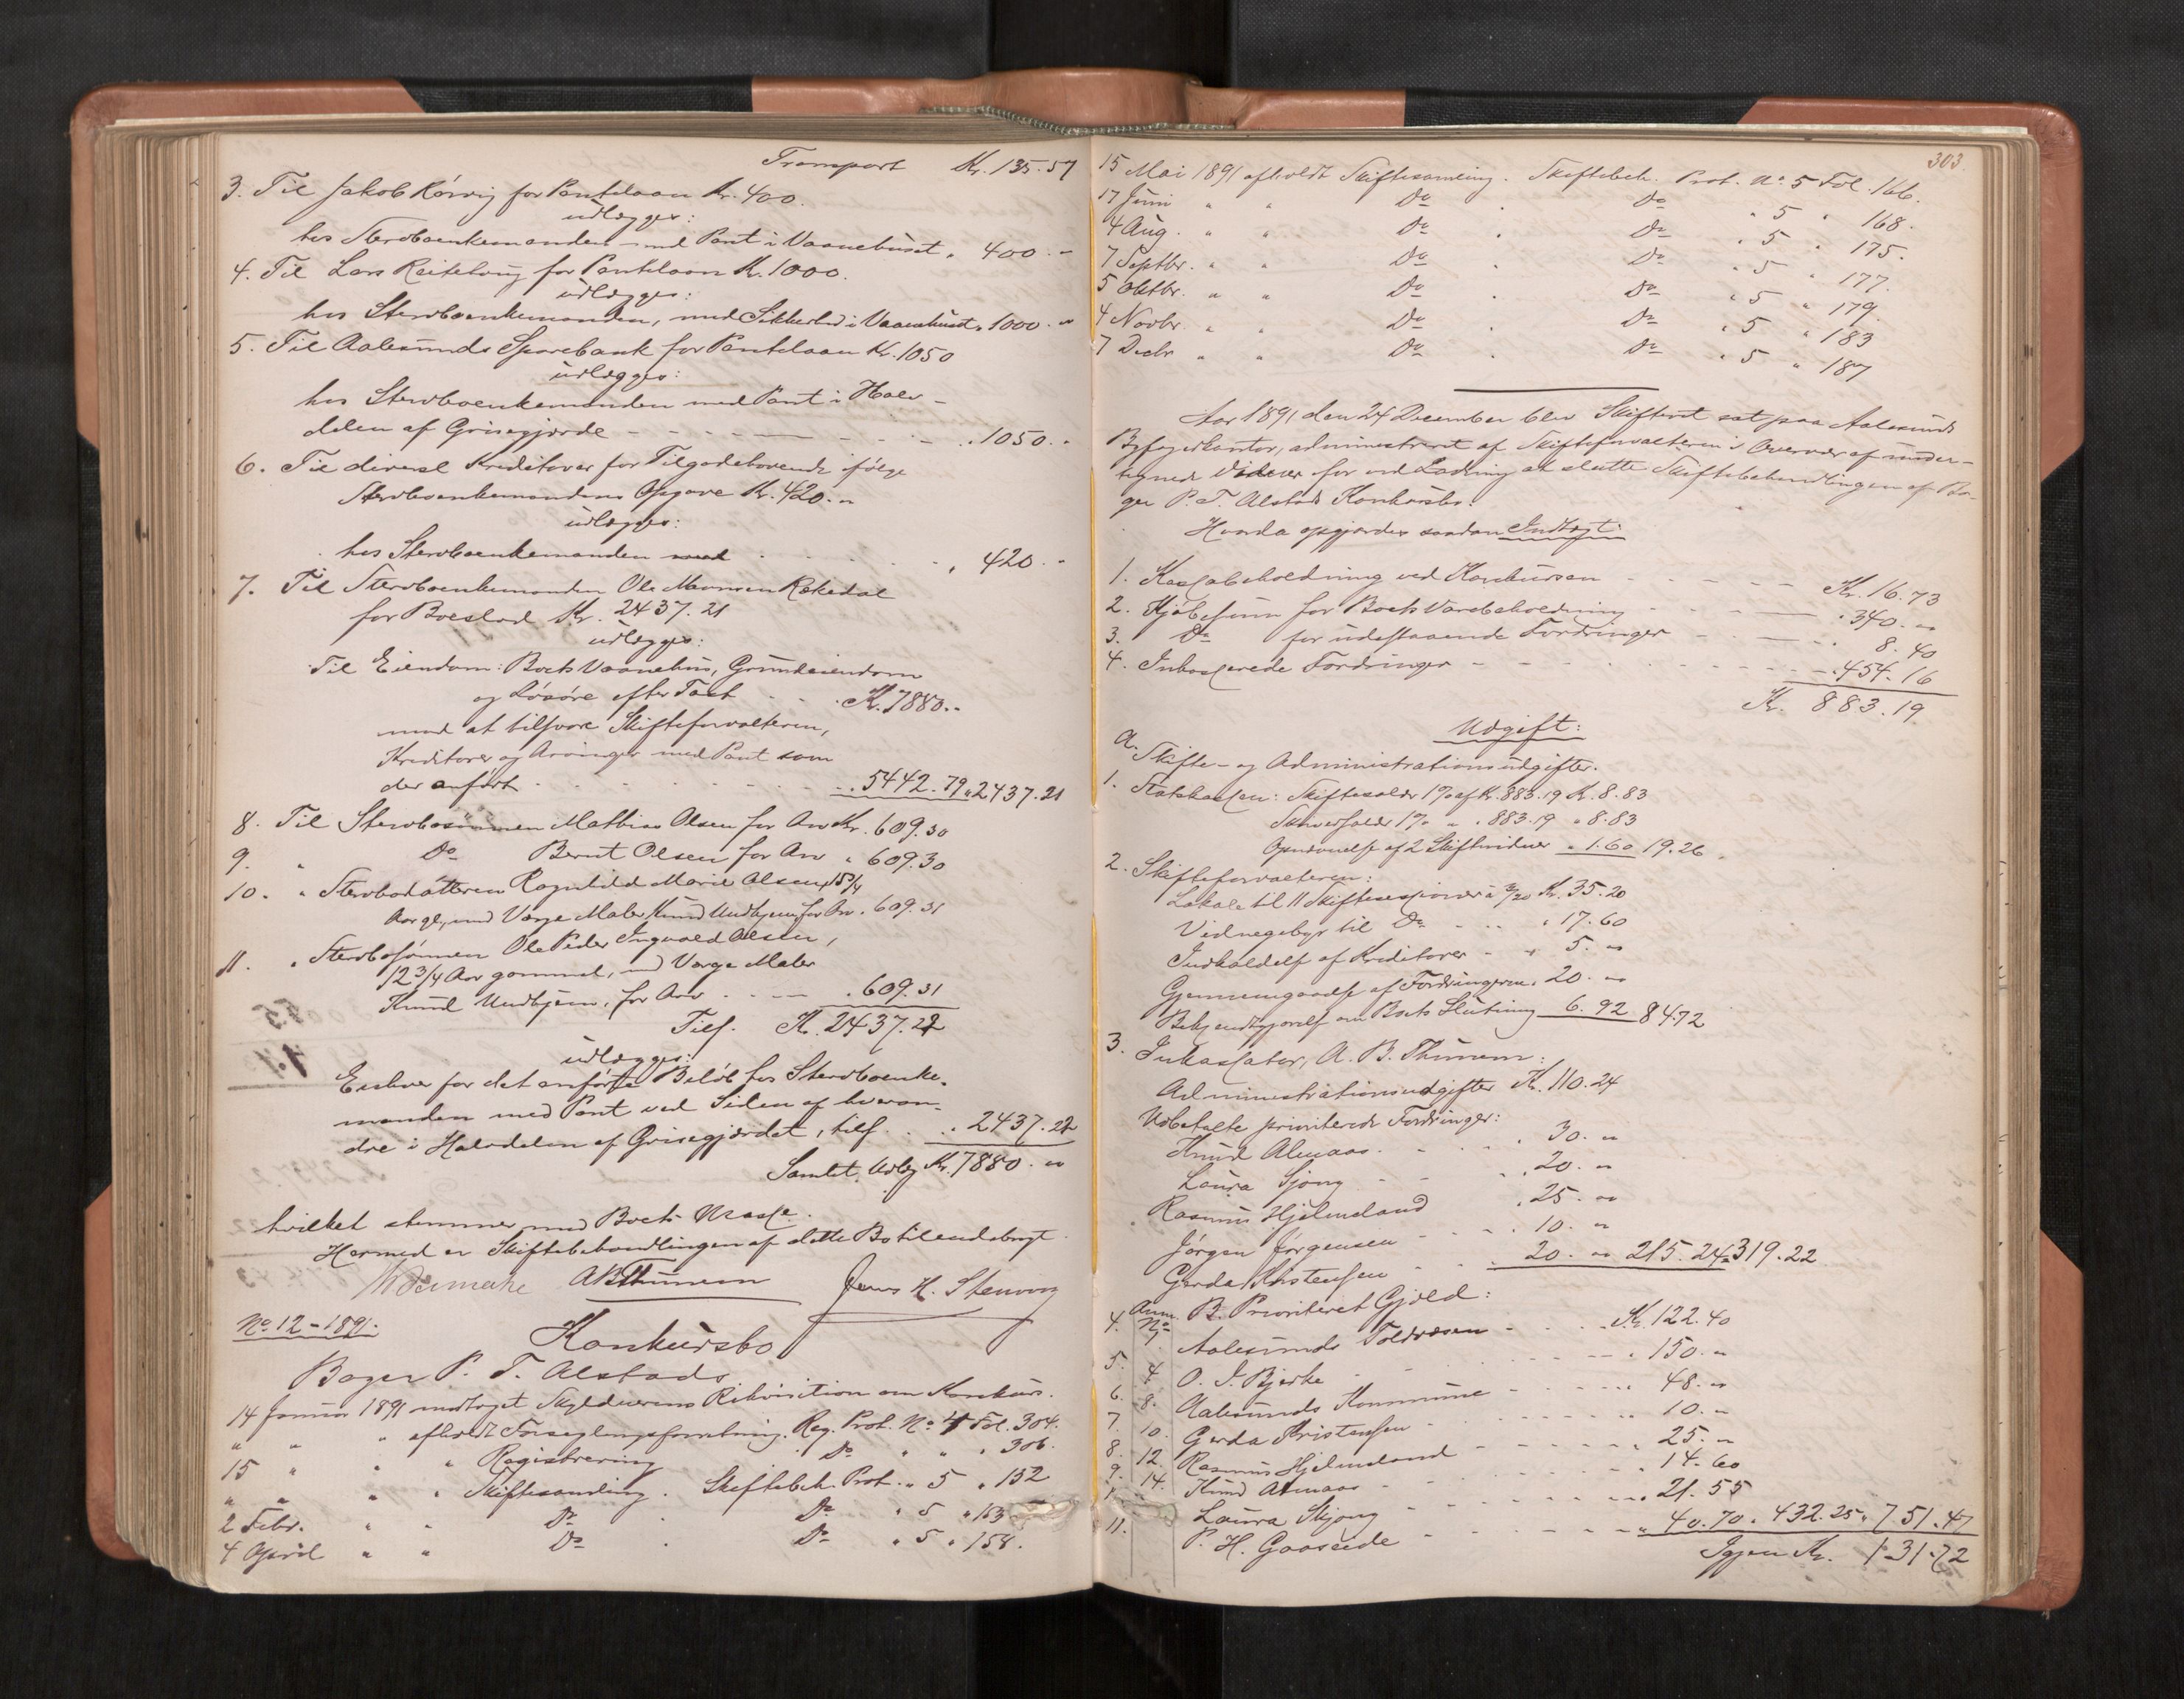 Transport Kr. 135.57
3. Til Jakob Rörvig for Pantelaan Kr. 400.
udlægges:
hos Sterboenkemanden med Pant i Vaanehuset " 400.-
4. Til Lars Reitehoug for Pantelaan Kr. 1000.
udlægges:
hos Sterboenkemanden, med Sikkerhed i Vaanehuset " 1000.-
5. Til Aalesunds Sparebank for Pantelaan Kr. 1050
udlægges:
hos Sterboenkemanden med Pant i Halv-
delen af Grisegjærde - - - - " 1050.-
6. Til diverse Kreditorer for Tilgodehavende ifölge
Sterboenkemandens Opgave Kr. 420.-
udlægges:
hos Sterboenkemanden med - - - " 420.-
7. Til Sterboenkemanden Ole Monsen Rekedal
for Boeslod Kr. 2437.21
udlægges:
Til Eiendom: Boets Vaanehus, Grundeiendom
og Lösöre efter Taxt - - Kr. 7880.-
mod at tilsvare Skifteforvalteren,
Kreditorer og Arvinger med Pant som
der anfört - - - - 5442.79 " 2437.21
8. Til Sterbosönnen Mathias Olsen for Arv Kr. 609.30
9. " Do Bernt Olsen for Arv " 609.30
10. " Sterbodatteren Ragnhild Marie Olsen, 15 3/4
Aar gl., med Værge Maler Knud Undhjem, for Arv " 609.31
11. " Sterbosönnen Ole Peder Ingvald Olsen,
12 3/4 Aar gammel, med Værge Maler
Knud Undhjem, for Arv - - " 609.31
Tils. Kr. 2437.22
udlægges:
Enhver for det anförte Belöb hos Sterboenke-
manden med Pant ved Siden af hveran-
dre i Halvdelen af Grisegjærdet, tils. - " 2437.22
Samlet Udlæg Kr. 7880.-
hvilket stemmer med Boets Masse.
Hermed er Skiftebehandlingen af dette Bo tilendebragt.
ABThunem Jens H. Stenvig
No 12-1891.
Konkursbo
Bager P. T. Alstads
14 Januar 1891 modtaget Skyldnerens Rekvisition om Konkurs.
" " " afholdt Forseglingsforretning. Reg. Prot. No 4 Fol. 304.
15 " " " Registrering Do " " " 306.
" " " " Skiftesamling. Skiftebeh. Prot. " 5 " 152
2 Febr. " " Do . Do " 5 " 153
4 April " " Do . Do " 5 " 158.
303
15 Mai 1891 afholdt Skiftesamling. Skiftebeh. Prot. No 5 Fol. 166.
17 Juni " " Do . Do " 5 " 168.
4 Aug. " " Do . Do " 5 " 175.
7 Septbr. " " Do . Do " 5 " 177.
5 Oktbr. " " Do . Do " 5 " 179.
4 Novbr. " " Do . Do " 5 " 183
7 Decbr " " Do . Do " 5 " 187
Aar 1891 den 24 December blev Skifteret sat paa Aalesunds
Byfogedkontor, administreret af Skifteforvalteren i Overvær af under-
tegnede Vidner for ved Lodning at slutte Skiftebehandlingen af Ba-
ger P. T. Alstads Konkursbo.
Hvorda opgjordes saadan Indtægt:
1. Kassabeholdning ved Konkursen - - - - Kr. 16.73
2. Kjöbesum for Boets Varebeholdning - - - " 340.-
3. Do for udestaaende Fordringer - - - " 8.40
4. Inkasserede Fordringer - - - - " 454.16
Kr. 883.19
Udgift:
A. Skifte- og Administrationsudgifter.
1. Statskassen: Skiftesalær 1% af Kr. 883.19 Kr. 8.83
1% " " 883.19 " 8.83
Opnævnelse af 2 Skiftevidner " 1.60 19.26
2. Skifteforvalteren:
Lokale til 11 Skiftesessioner à 3/20 Kr. 35.20
Vidnegebyr til Do - - " 17.60
Indkaldelse af Kreditorer - " 5.-
Gjennemgaaelse af Fordringerne " 20.-
Bekjendtgjörelse om Boets Slutning 6.92 84.72
3. Inkassator, A. B. Thunem:
Administrationsudgifter Kr. 110.24
Udbetalte prioriterede Fordringer:
Knud Almaas - - " 30.-
Laura Sjong - - " 20.-
Rasmus Hjelmeland " 25.-
Jörgen Jörgensen - - " 10.-
Gerda Kristensen - - " 20.- 215.24 " 319.22
Anm. No B. Prioriteret Gjæld:
4. 1. Aalesunds Toldvæsen - - Kr. 122.40
5. 4. O. J. Bjerke - - - " 150.-
6. 8. Aalesunds Kommune - - - " 48.-
7. 10. Gerda Kristensen - - - " 10.-
8. 12. Rasmus Hjelmeland - - - " 25.-
9. 14. Knud Almaas - - - " 14.60
Laura Skjong - - - " 21.55
11. P. H. Gaaseide - - - " 40.70 " 432.25 " 751.47
Igjen Kr. 131.72